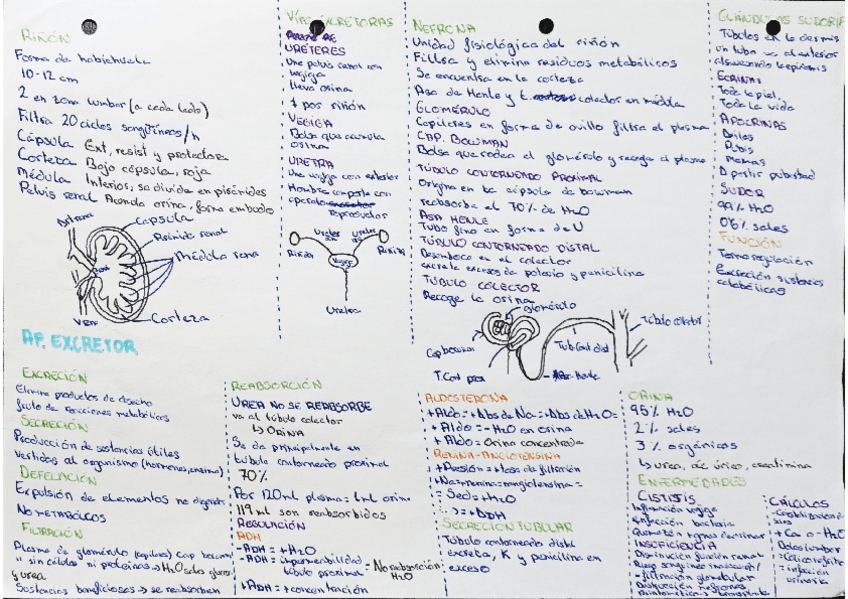 RIÑÓN
Forma de habichuela
10-12 cm
2 en zona lumbar (a cada lado)
Filtra 20 ciclos sanguíneos/h
Cápsula Ext, resist y protectora
Corteza Bajo cápsula, roja
Médula Interior, se divide en pirámides
Pelvis renal Acumula orina, forma embudo
Capsula
Médula rena
Corteza
VÍAS EXCRETORAS
URETERES
Une pelvis renal con
vejiga
lleva orina
1 por riñón
VEGIGA
Bolsa que acumula
orina
URETRA
Une vejiga con exterior
Hombres comparte con
Reproductor
Uretra
NEFRONA
Unidad fisiológica del riñón
Filtra y elimina residuos metabólicos
Se encuentra en la corteza
Asa de Henle y colector en médula
GLOMÉRULO
Capilares en forma de ovillo filtra el plasma
CAP. BOWMAN
Bolsa que rodea el glomérulo y recoge el plasma
TÚBULO CONTORNEADO PROXIMAL
Origina en la cápsula de bowman
reabsorbe el 70% de H₂O
ASA HENLE
Tubo fino en forma de U
TÚBULO CONTORNEADO DISTAL
Desemboca en el colector
excreta excesos de potasio y penicilina
TÚBULO COLECTOR
Recoge la orina
glomérulo
Túbulo colector
Cap bowman
Tub Cont dist
T. Cont prox
Túbulos en la dermis
un tubo va al exterior
ECRINAS
Toda piel,
Toda la vida
APOCRINAS
Axilas
Pubis
Mamas
A partir pubertad
SUDOR
99% H₂O
0'6% sales
FUNCIÓN
Termorregulación
Excreción sustancias
catabólicas
AP. EXCRETOR
EXCRECIÓN
Elimina productos de desecho
fruto de reacciones metabólicas
SECRECIÓN
Producción de sustancias útiles
vertidas al organismo (hormonas, enzimas)
DEFECACIÓN
Expulsión de elementos no digeridos
NO METABÓLICOS
FILTRACIÓN
Plasma de glomérulo (capilares) cap bowman
" sin células ni proteínas → H₂O sales glucosa
y urea
Sustancias beneficiosas → se reabsorben
REABSORCIÓN
UREA NO SE REABSORBE
va al túbulo colector
↳ ORINA
Se da principalmente en
túbulo contorneado proximal
70%
Por 120ml plasma = 1ml orina
119 ml son reabsorbidos
REGULACIÓN
ADH
-ADH = +H₂O
-ADH = impermeabilidad = No reabsorción
túbulo proximal H₂O
+ADH = +concentración
ALDOSTERONA
+Aldo = +Abs de Na = +Abs de H₂O =
+Aldo = -H₂O en orina
+Aldo = Orina concentrada
RENINA-ANGIOTENSINA
+Presión = +tasa de filtración
+Na = +renina = +angiotensina =
= Sed = +H₂O
= +ADH
SECRECIÓN TUBULAR
Túbulo contorneado distal
excreta, K y penicilina en
exceso
ORINA
95% H₂O
2% sales
3% orgánicos
↳ urea, ác úrico, creatinina
ENFERMEDADES
CISTITIS
Inflamación vejiga
Infección bacteria
INSUFICIENCIA
Disminución función renal
CÁLCULOS
+Ca o -H₂O
Dolor lumbar
= infección
urinaria